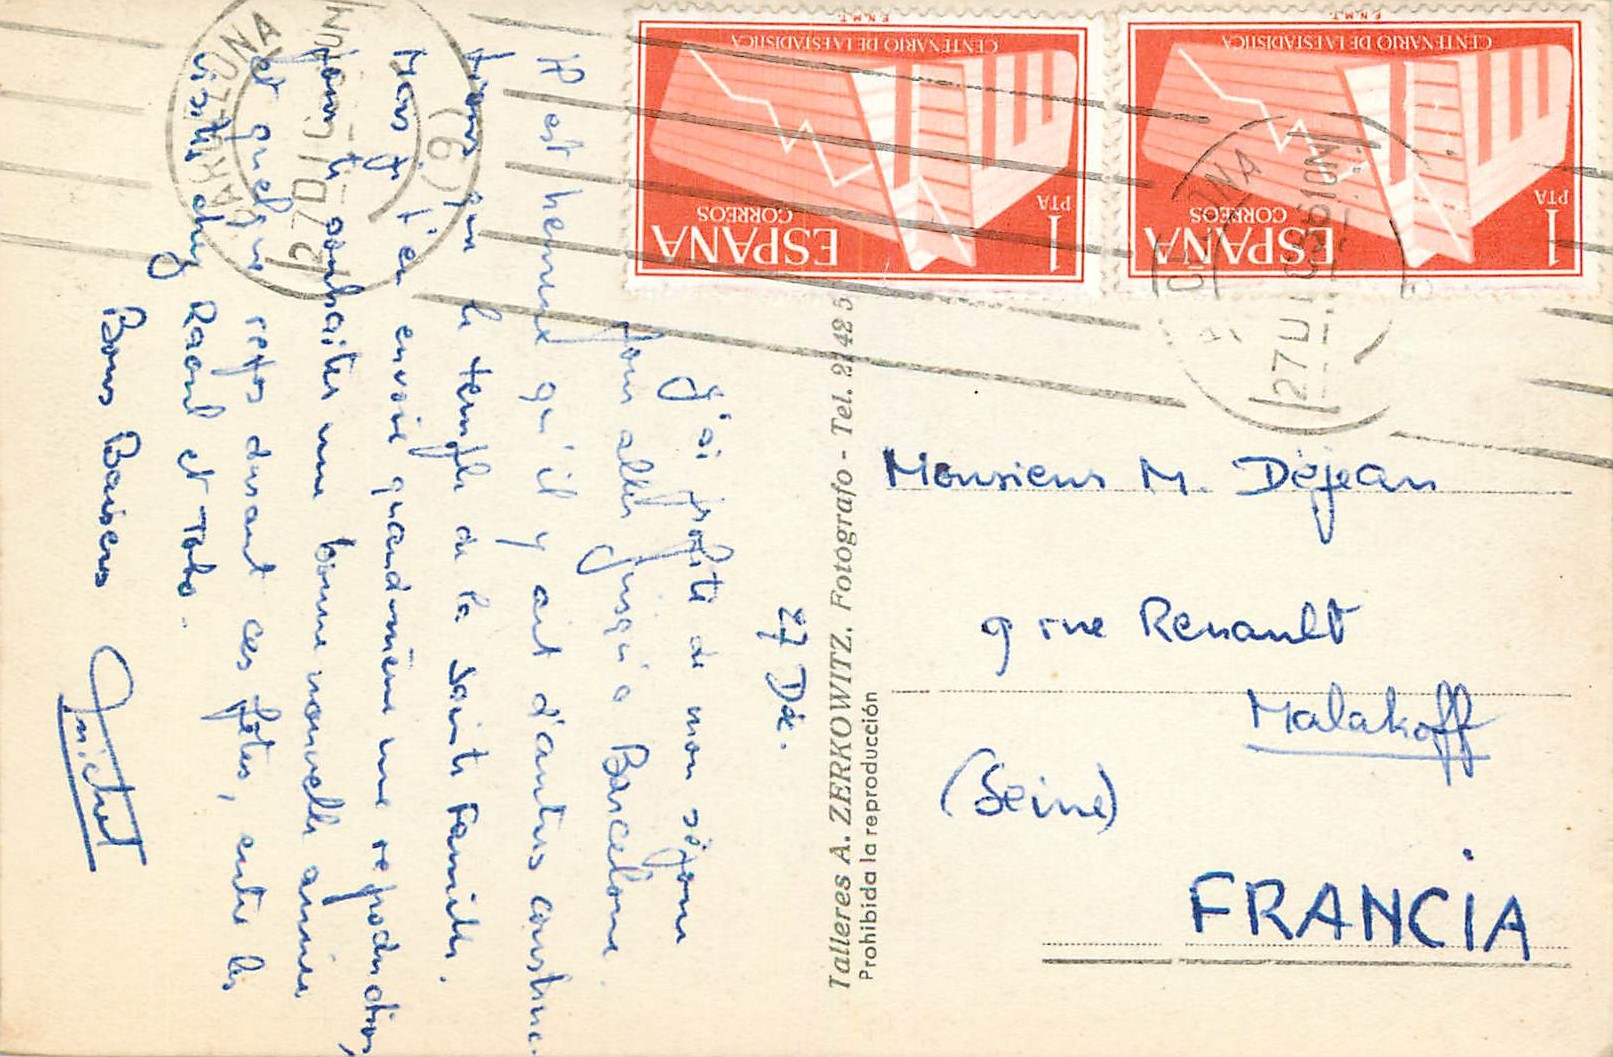 27 Déc.
J'ai profité de mon séjour
pour aller jusqu'à Barcelone
Il est heureux qu'il y ait d'autres construc-
tions que le temple de la Sainte Famille.
Mais je t'en envoie quand même une reproduction,
pour te souhaiter une bonne nouvelle année
et quelque repos durant ces fêtes, entre les
visites chez Raoul et Toto.
Bons Baisers
Talleres A. ZERKOWITZ. Fotógrafo - Tel. 2142 5
Prohibida la reproducción
F.N.M.T.
CENTENARIO DE LA ESTADISTICA
1 PTA
CORREOS
ESPAÑA
F.N.M.T.
CENTENARIO DE LA ESTADISTICA
1 PTA
CORREOS
ESPAÑA
BARCELONA
27 D
(6)
Monsieur M. Dejean
9 rue Renault
Malakoff
(Seine)
FRANCIA